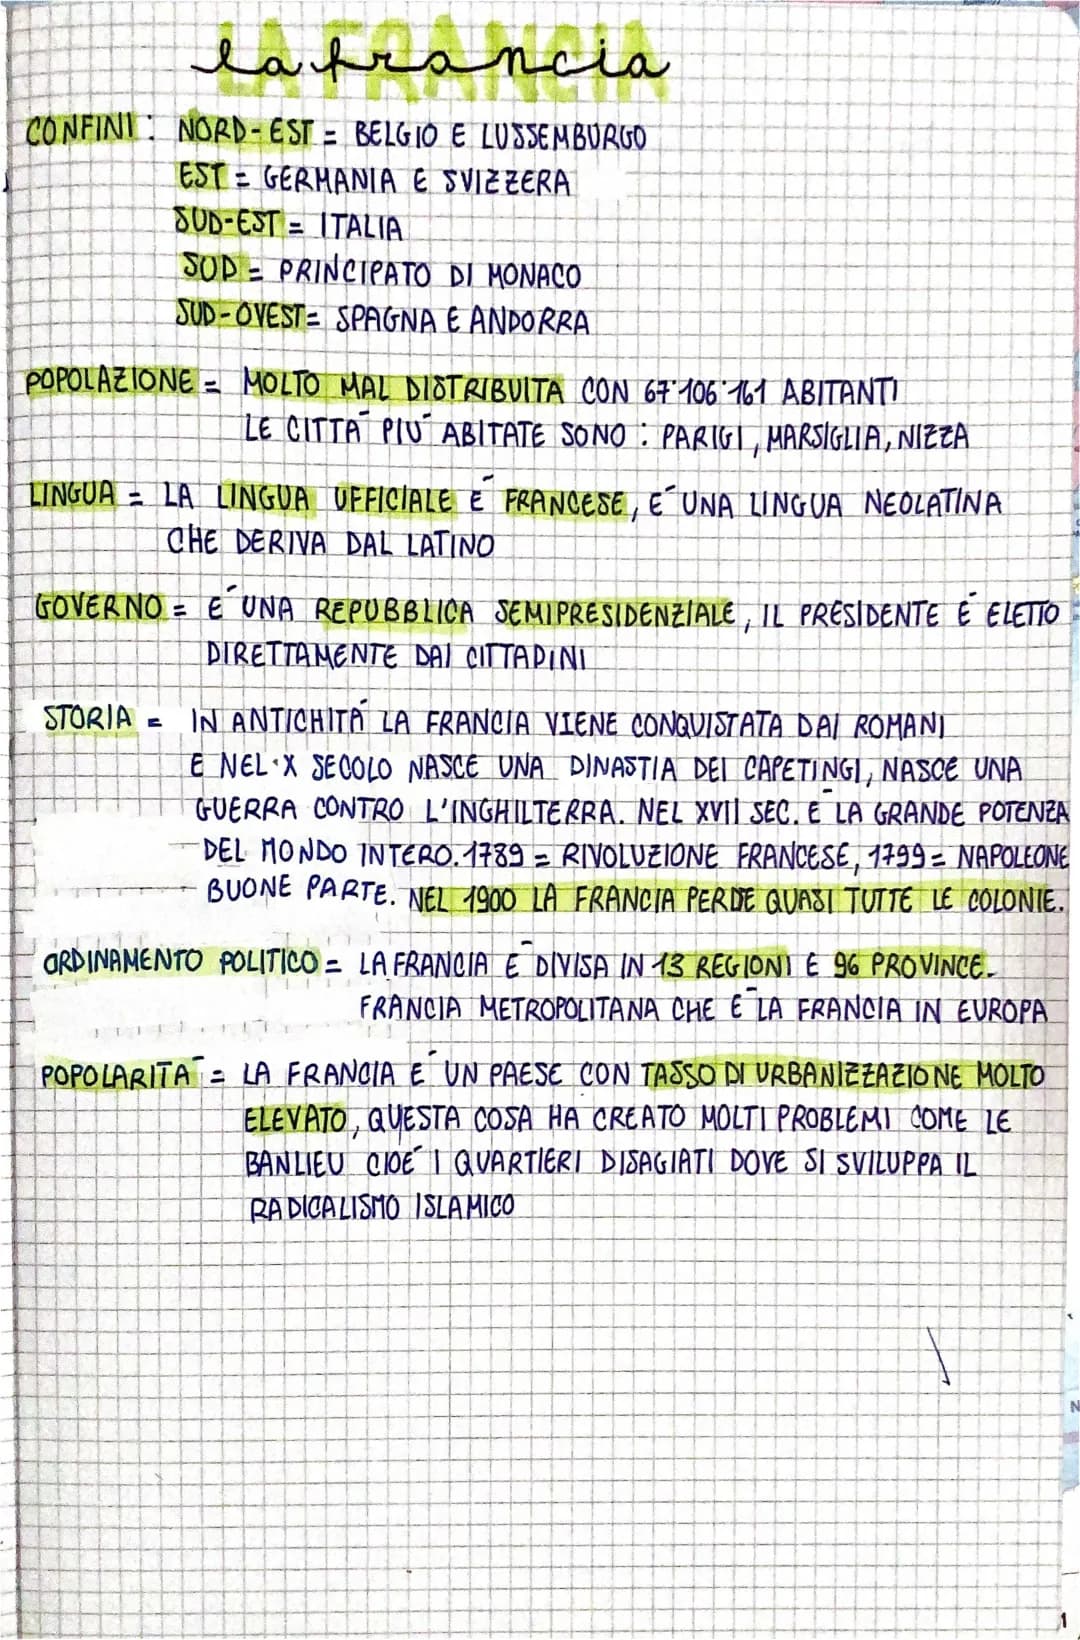 LA FRANCIA
la francia
CONFINI: NORD-EST = BELGIO E LUSSEMBURGO
EST = GERMANIA E SVIZZERA
SUD-EST = ITALIA
SUD = PRINCIPATO DI MONACO
SUD-OVEST = SPAGNA E ANDORRA
POPOLAZIONE = MOLTO MAL DISTRIBUITA CON 67'106'161 ABITANTI
LE CITTÁ PIÚ ABITATE SONO: PARIGI, MARSIGLIA, NIZZA
LINGUA = LA LINGUA UFFICIALE É FRANCESE, É UNA LINGUA NEOLATINA
CHE DERIVA DAL LATINO
GOVERNO = É UNA REPUBBLICA SEMIPRESIDENZIALE, IL PRESIDENTE É ELETTO
DIRETTAMENTE DAI CITTADINI
STORIA = IN ANTICHITÁ LA FRANCIA VIENE CONQUISTATA DAI ROMANI
E NEL X SECOLO NASCE UNA DINASTIA DEI CAPETINGI, NASCE UNA
GUERRA CONTRO L'INGHILTERRA. NEL XVII SEC. É LA GRANDE POTENZA
DEL MONDO INTERO. 1789 = RIVOLUZIONE FRANCESE, 1799 = NAPOLEONE
BUONE PARTE. NEL 1900 LA FRANCIA PERDE QUASI TUTTE LE COLONIE.
ORDINAMENTO POLITICO = LA FRANCIA É DIVISA IN 13 REGIONI E 96 PROVINCE.
FRANCIA METROPOLITANA CHE É LA FRANCIA IN EUROPA
POPOLARITÁ = LA FRANCIA É UN PAESE CON TASSO DI URBANIZZAZIONE MOLTO
ELEVATO, QUESTA COSA HA CREATO MOLTI PROBLEMI COME LE
BANLIEU CIOÉ I QUARTIERI DISAGIATI DOVE SI SVILUPPA IL
RADICALISMO ISLAMICO
N
1